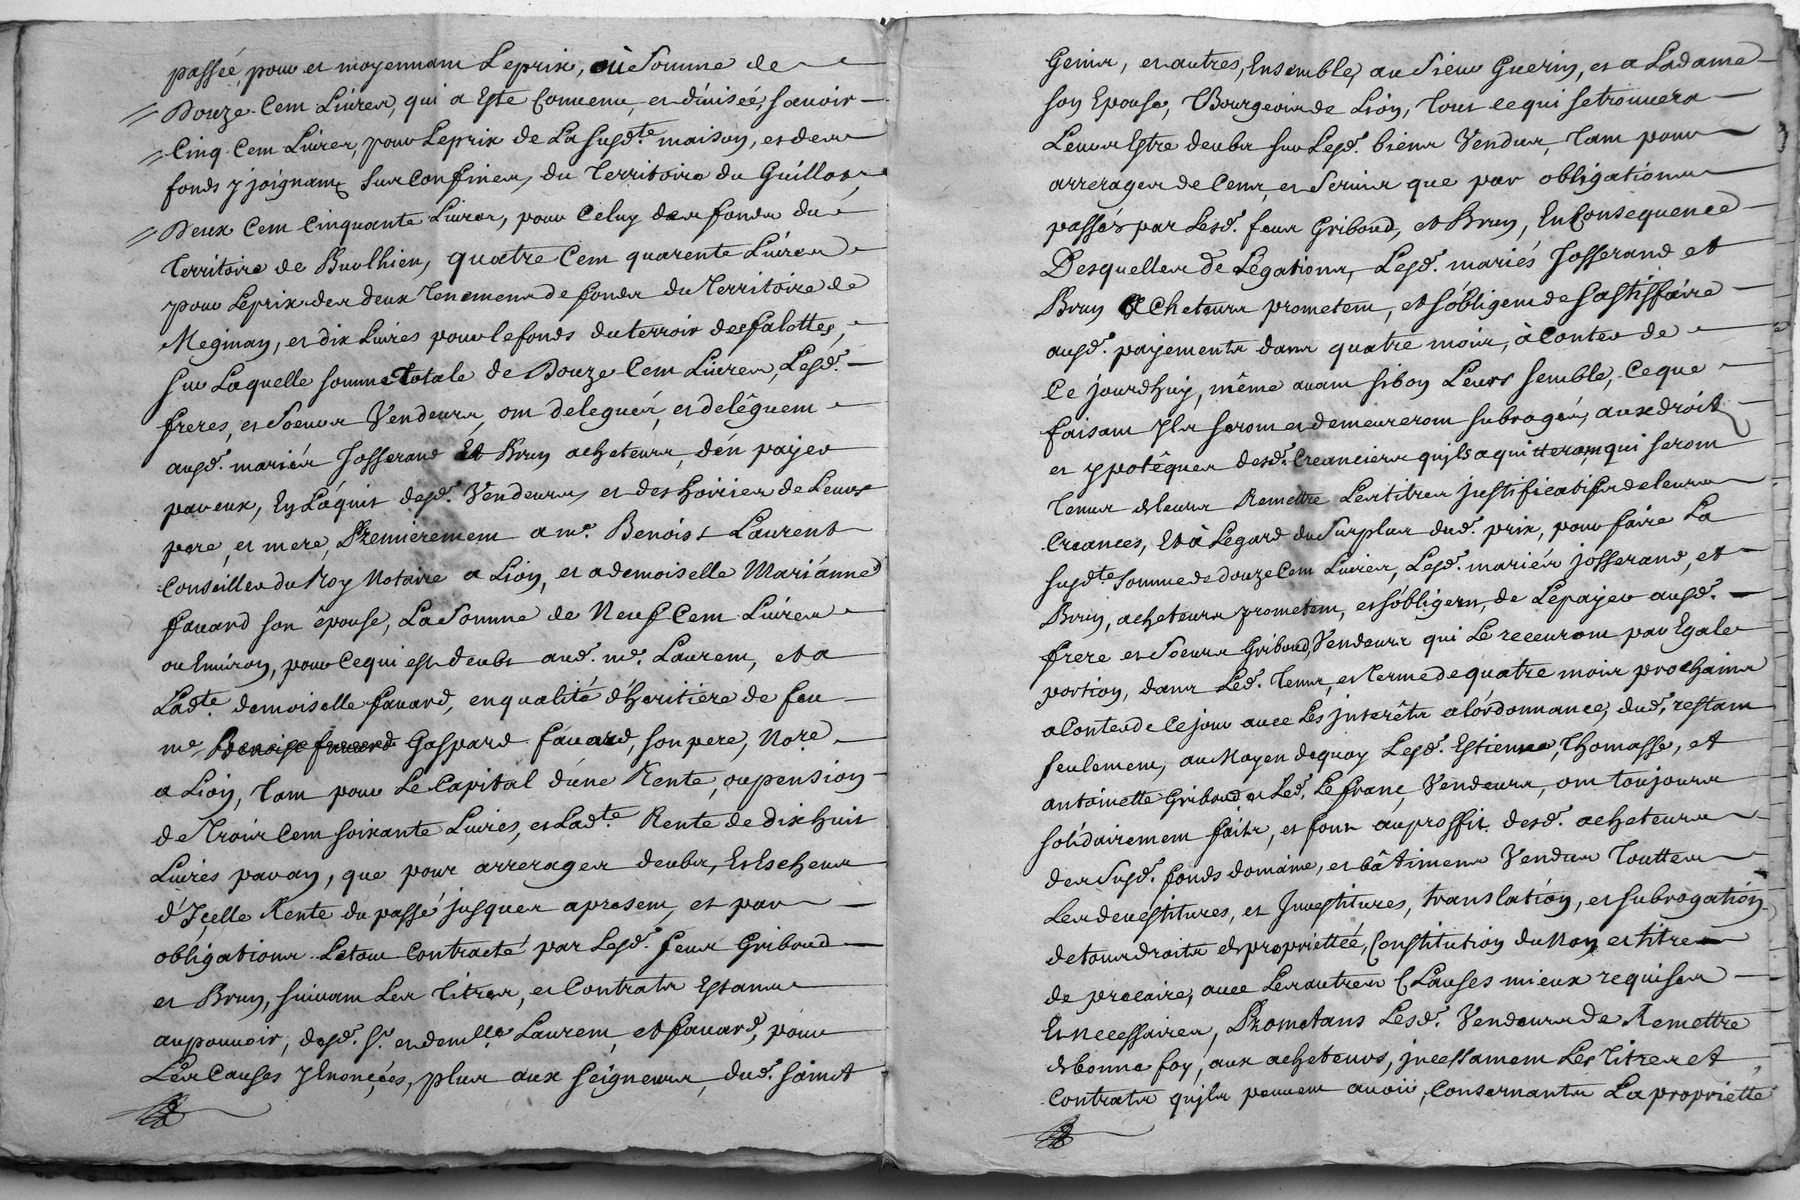 passée, pour et moyennant Leprix, où Somme de
Douze Cent Livres, qui a Este Convenu, et divisée, scavoir
Cinq Cent Livres, pour Leprix de La Susd.te maison, et des
fonds y joignant Sur Confines, du Territoire du Guillot,
Deux Cent Cinquante Livres, pour Celuy des fonds du
Territoire de Buolhien, quatre Cent quarente Livres
pour Leprix des deux Tenemens de fonds du Territoire de
Meginan, et dix Livres pour le fonds du terroir des falottes,
Sur Laquelle somme Totale de Douze Cent Livres, Lesd.
freres, et Soeurs Vendeurs, ont delegués, et delèguent
ausd. mariés Josserand Et Brun acheteurs, d'en payer
par eux, En L'aquit desd. Vendeurs, et des hoiries de Leurs
pere, et mere, Premierement a me. Benoist Laurent
Conseiller du Roy Notaire a Lion, et a demoiselle Mariánne
favard son êpouse, La Somme de Neuf Cent Livres
ou Environ, pour Cequi est deubt aud. me. Laurent, et a
Lad.te demoiselle favard, en qualité d'heritière de feu
me Benoist favard Gaspard favard, son pere, No.re
a Lion, tant pour Le Capital d'une Rente, ou pension
de Trois Cent soixante Livres, et Lad.te Rente de dix huit
Livres par an, que pour arrerages deubs, Et Escheus
d'Icelle Rente du passé jusques apresent, et par
obligations Le tout Contracté par Lesd. feus Griboud
et Brun, suivant Les Titres, et Contrats Estant
au pouvoir, desd. Sr. et demlle Laurent, et favard, pour
Les Causes y Enoncées, plus aux seigneurs, dud. saint
Genis, et autres, Ensemble, au Sieur Guerin, et a La dame
son Epouse, Bourgeois de Lion, Tout ce qui se trouvera
Leurs Estre deubs sur Lesd. biens Vendus, tant pour
arrerages de Cens, et Servis que par obligations
passés par Lesd. feus Griboud, et Brun, En Consequence
Desquelles de Legations, Lesd. mariés Josserand et
Brun acheteurs prometent, et s'obligent de Sastisfaire
ausd. payements dans quatre mois, à Conter de
Ce jourdhuy, même avant si bon Leurs semble, Ceque
faisant Ils seront et demeureront subrogés, aux droits
et ypotêques desd. Creanciers quils aquitteront, qui seront
tenus de leurs Remettre Les titres justificatifs de leurs
Creances, Et à L'egard du Surplus dud. prix, pour faire La
susd.te somme de douze Cent Livres, Lesd. mariés josserand, et
Brun, acheteurs prometent, et s'obligent, de Le payer ausd.
frere et Soeurs Griboud, Vendeurs qui Le recevront par Egale
portion, dans Led. tems, et terme de quatre mois prochains
a Conter de Ce jour avec Les jnterêts a L'ordonnance, dud. restant
seulement, au Moyen dequoy Lesd. Estienne, Thomasse, et
antoinette Griboud, et Led. Lefranc, Vendeurs, ont toujours
solidairement faits, et font au proffit desd. acheteurs
des Susd. fonds domaine, et bâtimens Vendus Touttes
Les devestitures, et Jnvestitures, translation, et subrogation
de tous droits de propriettée, Constitution du Non, et titre
de precaire, avec Les autres Clauses mieux requises
Et necessaires, Promettans Lesd. Vendeurs de Remettre
de bonne foy, aux acheteurs, jncessament Les Titres et
Contrats quils peuvent avoir, Consernants La propriette